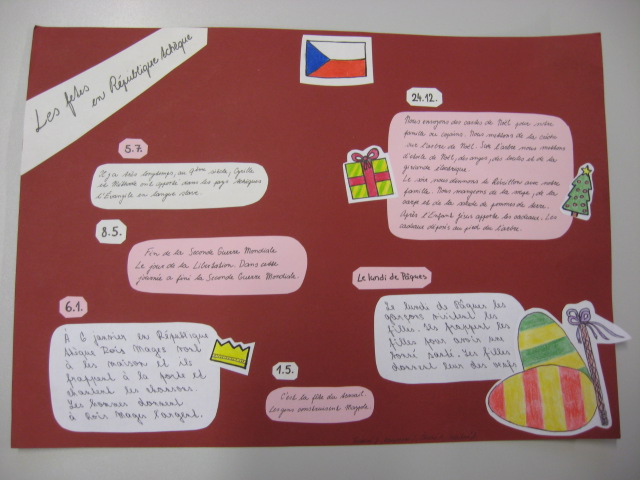 Les fetes
en République tchèque
5.7.
Il y a très longtemps, au 9ème siècle, Cyrille
et Méthode ont apporté dans les pays tchèques
l'Évangile en langue slave.
8.5.
Fin de la Seconde Guerre Mondiale
Le jour de la Libération. Dans cette
journée a fini la Seconde Guerre Mondiale.
6.1.
À 6 janvier en République
tchèque Rois Mages vont
à les maison et ils
frappent à la porte et
chantent les chansons.
Les hommes donnent
à Rois Mages l'argent.
24.12.
Nous envoyons des cartes de Noël pour notre
famille ou copains. Nous mettons de la
sur l'arbre de Noël. Sur l'arbre nous mettons
d'étoile de Noël, des anges, des boules et de la
girande électrique.
Le soir nous donnons le Réveillon avec notre
famille. Nous mangeons de la soupe, de la
carpe et de la salade de pommes de terre.
Après l'Enfant Jésus apporte les cadeaux. Les
cadeaux déposés au pied du l'arbre.
Le lundi de Pâques
Le lundi de Pâques les
garçons visitent les
filles. Ils frappent les
filles pour avoir une
bonne santé. Les filles
donnent leur des oeufs
1.5.
C'est la fête du travail.
Les gens construisent Maypole.